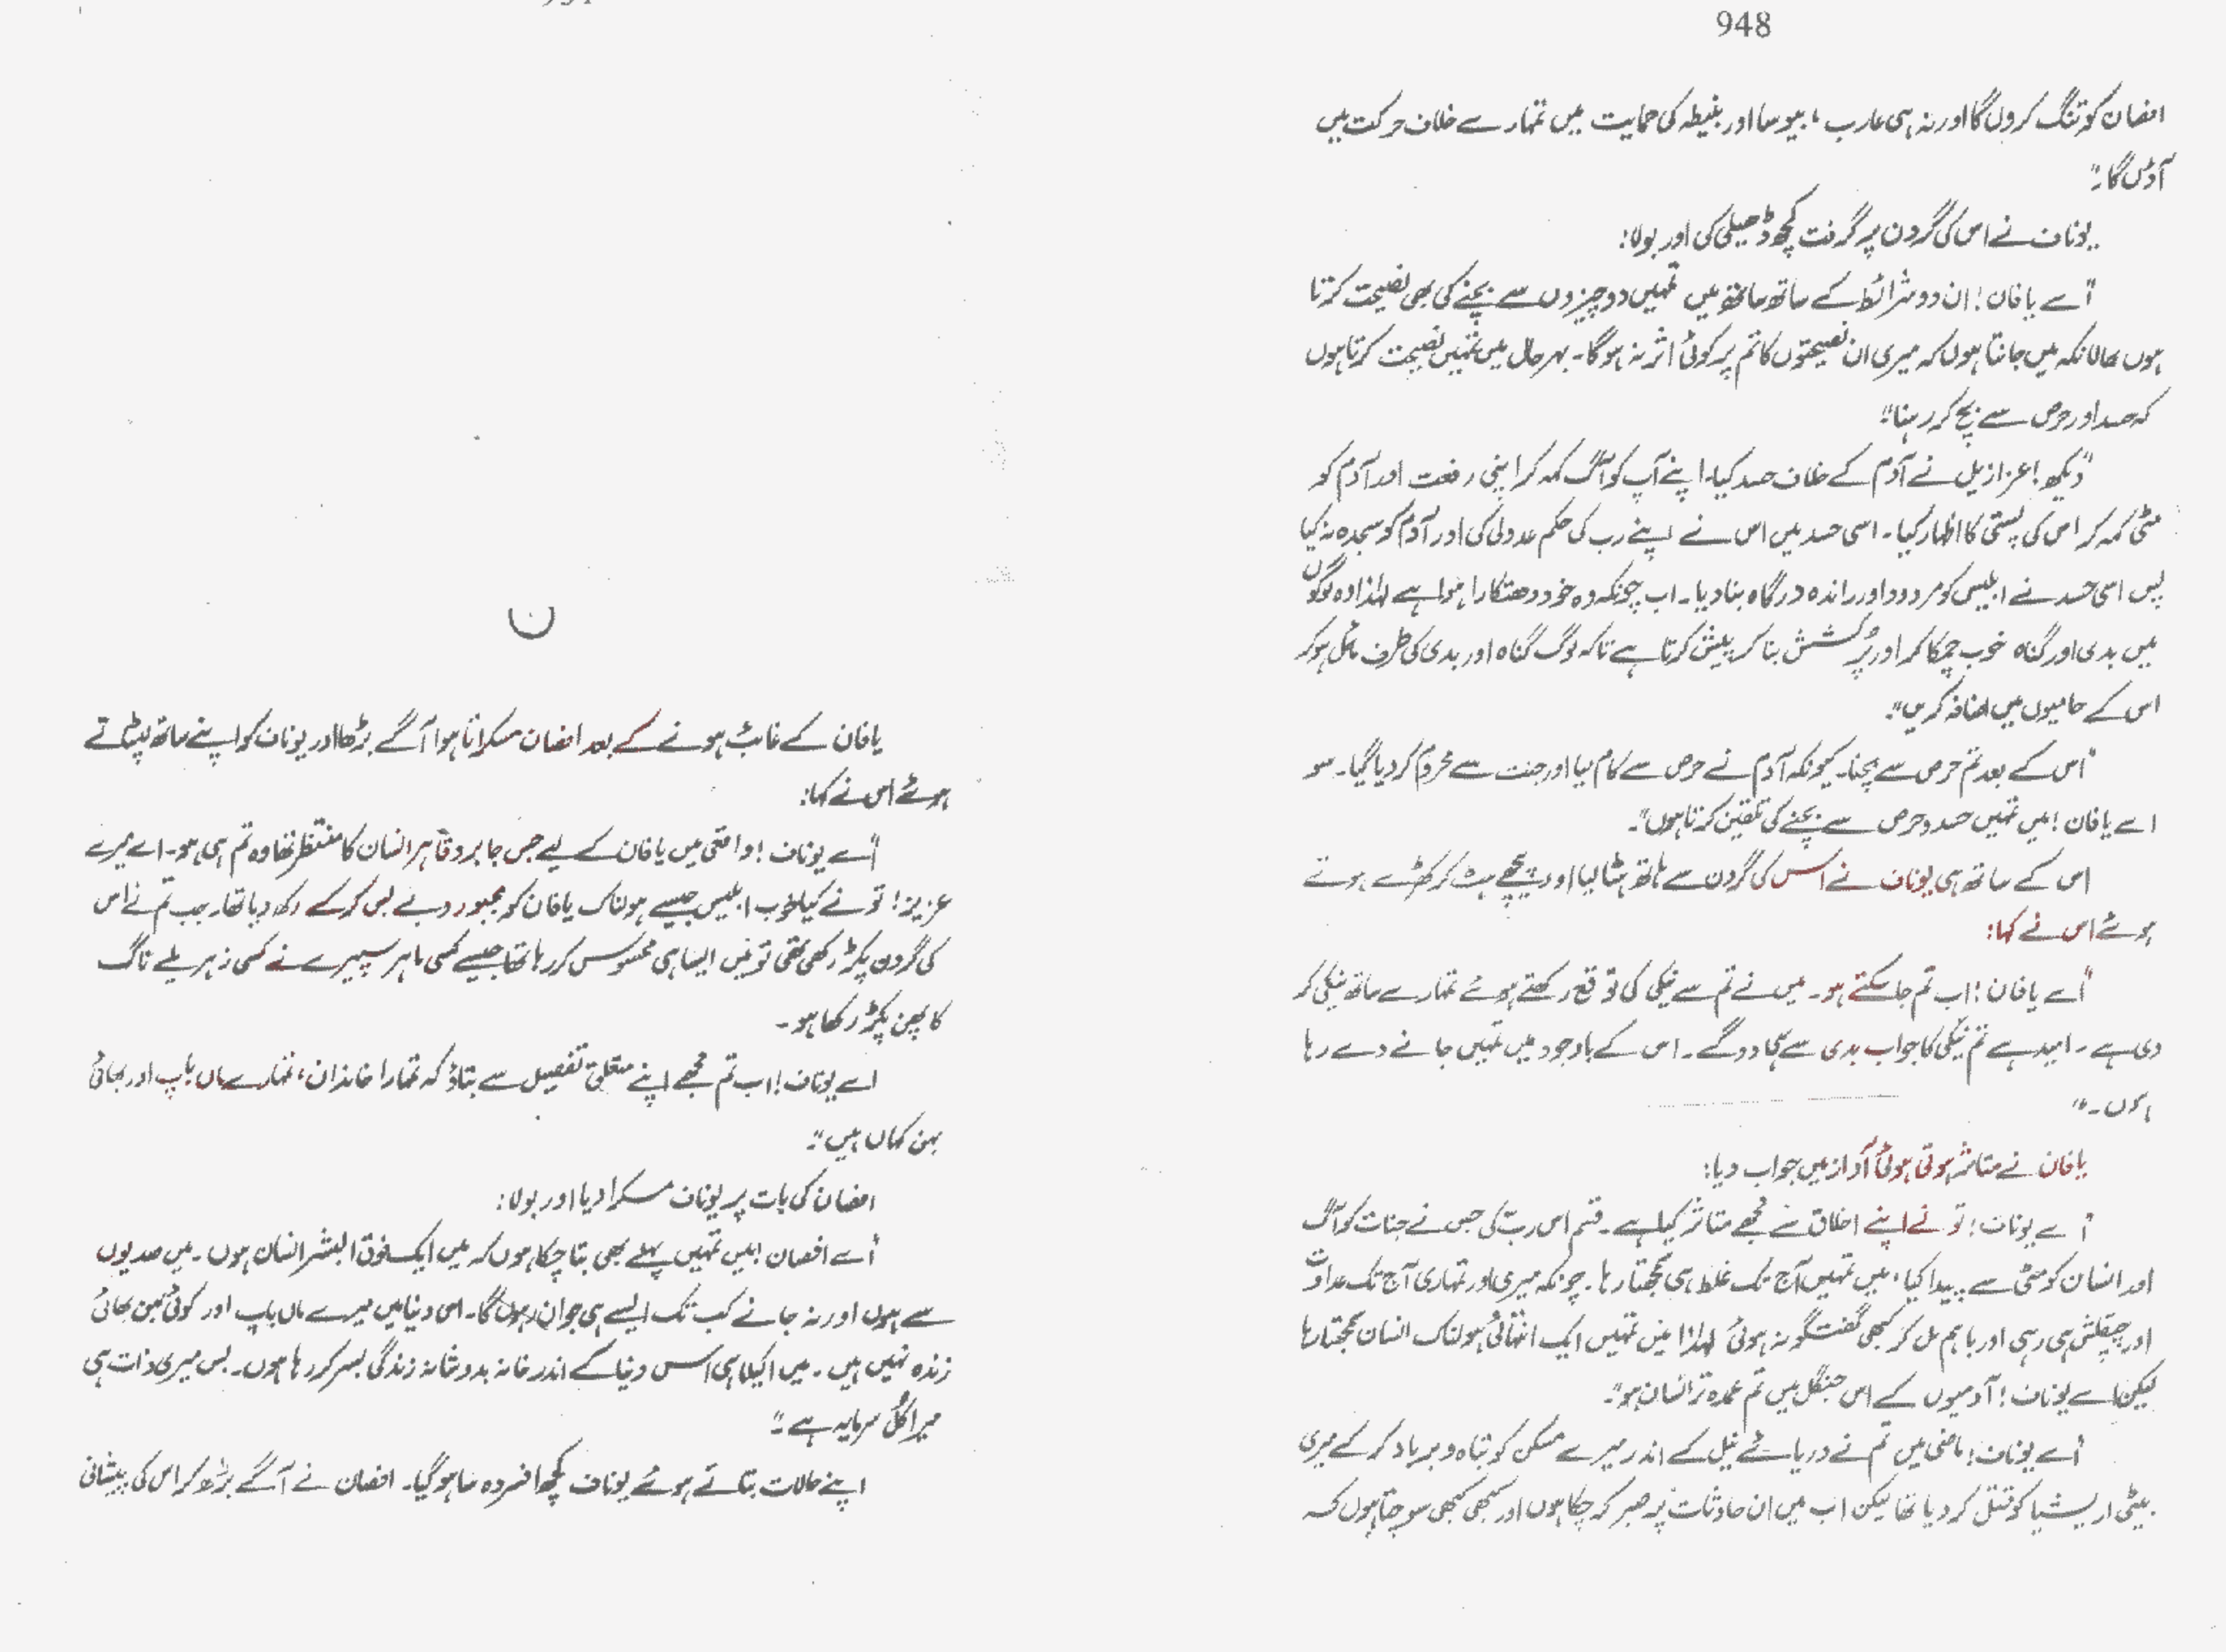 948
افضان کو تنگ کروں گا اور نہ ہی عارب، بیوسا اور بنیطہ کی حمایت میں تمہارے خلاف حرکت میں
آؤں گا۔"
یوناف نے اس کی گردن پر گرفت کچھ ڈھیلی کی اور بولا:
"اے یافان! ان دو شرائط کے ساتھ ساتھ میں تمہیں دو چیزوں سے بچنے کی بھی نصیحت کرتا
ہوں حالانکہ میں جانتا ہوں کہ میری ان نصیحتوں کا تم پر کوئی اثر نہ ہو گا۔ بہرحال میں تمہیں نصیحت کرتا ہوں
کہ حسد اور حرص سے بچ کر رہنا"
"دیکھ! عزازیل نے آدم کے خلاف حسد کیا۔ اپنے آپ کو آگ کہہ کر اپنی رفعت اور آدم کو
مٹی کہہ کر اس کی پستی کا اظہار کیا۔ اسی حسد میں اس نے اپنے رب کی حکم عدولی کی اور آدم کو سجدہ نہ کیا
پس اسی حسد نے ابلیس کو مردود اور راندہ درگاہ بنا دیا۔ اب چونکہ وہ خود دھتکارا ہوا ہے لہٰذا وہ لوگوں
میں بدی اور گناہ خوب چمکا کر اور پُرکشش بنا کر پیش کرتا ہے تاکہ لوگ گناہ اور بدی کی طرف مائل ہو کر
اس کے حامیوں میں اضافہ کریں"۔
"اس کے بعد تم حرص سے بچنا۔ کیونکہ آدم نے حرص سے کام لیا اور جنت سے محروم کر دیا گیا۔ سو
اے یافان! میں تمہیں حسد و حرص سے بچنے کی تلقین کرتا ہوں"۔
اس کے ساتھ ہی یوناف نے اس کی گردن سے ہاتھ ہٹا لیا اور پیچھے ہٹ کر کھڑے ہوتے
ہوئے اس نے کہا:
"اے یافان! اب تم جا سکتے ہو۔ میں نے تم سے نیکی کی توقع رکھتے ہوئے تمہارے ساتھ نیکی کر
دی ہے۔ امید ہے تم نیکی کا جواب بدی سے ہی دو گے۔ اس کے باوجود میں تمہیں جانے دے رہا
ہوں۔"
یافان نے متاثر ہوتی ہوئی آواز میں جواب دیا:
"اے یوناف! تو نے اپنے اخلاق سے مجھے متاثر کیا ہے۔ قسم اس ربّ کی جس نے جنات کو آگ
اور انسان کو مٹی سے پیدا کیا، میں تمہیں آج تک غلط ہی سمجھتا رہا۔ چونکہ میری اور تمہاری آج تک عداوت
اور چپقلش ہی رہی اور باہم مل کر کبھی گفتگو نہ ہوئی لہٰذا میں تمہیں ایک انتہائی ہولناک انسان سمجھتا رہا
لیکن اے یوناف! آدمیوں کے اس جنگل میں تم عمدہ تر انسان ہو"۔
"اے یوناف! ماضی میں تم نے دریائے نیل کے اندر میرے مسکن کو تباہ و برباد کر کے میری
بیٹی اریشیا کو قتل کر دیا تھا لیکن اب میں ان حادثات پر صبر کر چکا ہوں اور کبھی کبھی سوچتا ہوں کہ
یافان کے غائب ہونے کے بعد افضان مسکراتا ہوا آگے بڑھا اور یوناف کو اپنے ساتھ لپٹاتے
ہوئے اس نے کہا:
"اے یوناف! واقعی میں یافان کے لیے جس جابر و قاہر انسان کا منتظر تھا وہ تم ہی ہو۔ اے میرے
عزیز! تو نے کیا خوب ابلیس جیسے ہولناک یافان کو مجبور و بے بس کر کے رکھ دیا تھا۔ جب تم نے اس
کی گردن پکڑ رکھی تھی تو میں ایسا ہی محسوس کر رہا تھا جیسے کسی ماہر سپیرے نے کسی زہریلے ناگ
کا پھن پکڑ رکھا ہو۔
اے یوناف! اب تم مجھے اپنے متعلق تفصیل سے بتاؤ کہ تمہارا خاندان، تمہارے ماں باپ اور بھائی
بہن کہاں ہیں"۔
افضان کی بات پر یوناف مسکرا دیا اور بولا:
"اے افضان! میں تمہیں پہلے بھی بتا چکا ہوں کہ میں ایک فوق البشر انسان ہوں۔ میں صدیوں
سے ہوں اور نہ جانے کب تک ایسے ہی جوان رہوں گا۔ اس دنیا میں میرے ماں باپ اور کوئی بہن بھائی
زندہ نہیں ہیں۔ میں اکیلا ہی اس دنیا کے اندر خانہ بدوشانہ زندگی بسر کر رہا ہوں۔ بس میری ذات ہی
میرا کُل سرمایہ ہے۔"
اپنے حالات بتاتے ہوئے یوناف کچھ افسردہ سا ہو گیا۔ افضان نے آگے بڑھ کر اس کی پیشانی